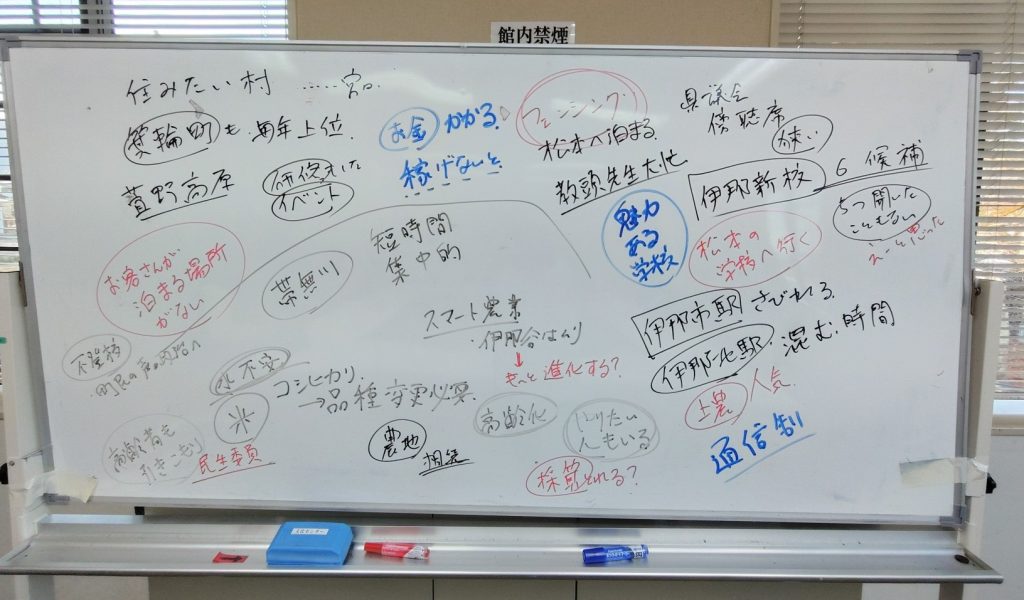 館内禁煙
住みたい村 ……宮田
箕輪町も 毎年上位
萱野高原
研修
イベント
お金 かかる
稼げないと
フェンシング
松本へ泊まる
教頭先生大忙
県議会
傍聴席
狭い
伊那新校 6候補
魅力
ある
学校
松本の
学校へ行く
5つ聞いた
お客さんが
泊まる場所
がない
帯無川
短時間
集中的
スマート農業
・伊那谷は
↓
もっと進化する?
伊那市駅 さびれる
伊那北駅 混む時間
上農 人気
通信制
不登校
水不安
米
コシヒカリ
→品種変更必要
高齢者も
引きこもり
民生委員
農地
相続
高齢化
やりたい
人もいる
採算とれる?